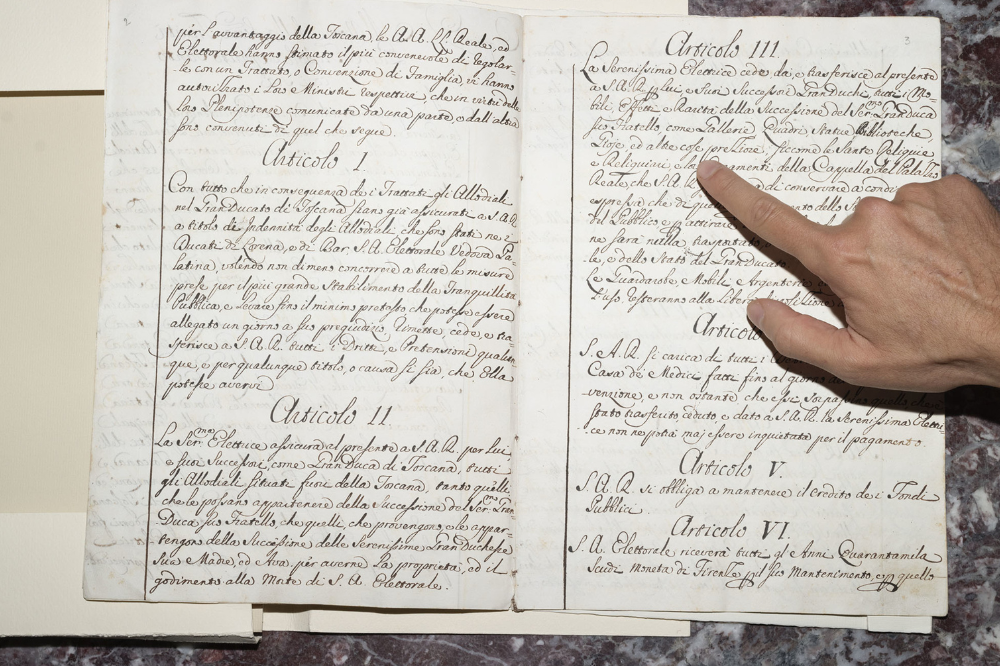 2
per l'avvantaggio della Toscana, le A.A. LL. Reale, ed
Elettorale hanno stimato il più convenevole di regolar-
-le con un Trattato, o Convenzione di Famiglia, vi hanno
autorizzato i loro Ministri respettivi, che in virtù delle
loro Plenipotenze comunicate da una parte, e dall'altra
sono convenuti di quel che segue.
Articolo I.
Con tutto che in conseguenza de i Trattati gli Allodiali
nel Gran Ducato di Toscana siano già assicurati a S.A.R.
a titolo di Indennità degli Allodiali che sono stati ne i
Ducati di Lorena, e di Bar, S.A. Elettorale Vedova Pa-
latina, volendo non dimeno concorrere a tutte le misure
prese per il più grande Stabilimento della Tranquillità
Pubblica, e levare fino il minimo pretesto che potesse essere
allegato un giorno a suo pregiudizio, rimette, cede, e tra-
sferisce a S.A.R. tutti i Dritti, e Pretensioni qualun-
que, e per qualunque titolo, o causa si sia, che Ella
potesse avervi
Articolo II.
La Ser.ma Elettrice assicura al presente a S.A.R. per lui
e suoi Successori, come Gran Duca di Toscana, tutti
gli Allodiali situati fuori della Toscana, tanto quelli
che le possano appartenere della Successione del Ser.mo Gran
Duca suo Fratello, che quelli, che provengono, e le appar-
-tengono della Successione delle Serenissime Gran Duchesse
Sua Madre, ed Ava, per averne la proprietà, ed il
godimento alla Morte di S.A. Elettorale.
3
Articolo III.
La Serenissima Elettrice cede, da, e trasferisce al presente
a S.A.R. p lui, e Suoi Successori Gran Duchi, tutti i Mo-
bili, Effetti e Rarità della Successione del Ser.mo Gran Duca
suo Fratello, come Gallerie, Quadri, Statue Biblioteche,
Gioje, ed altre cose preziose, siccome le Sante Reliquie
e Reliquiari, e loro Ornamenti della Cappella del Palazzo
Reale, che S.A. di conservare a condi
espressa che di quello
del Pubblico e p attirare
ne sarà nulla trasportato
le, e dello Stato del Gran Ducato.
Le Guardarobe Mobili Argenterie
uso resteranno alla Libera
Articolo
S.A.R. si carica di tutti i
Casa de Medici fatti fino al giorno
-venzione, e non ostante che essi sorpassino quello che
stato trasferito ceduto, e dato a S.A.R. la Serenissima Elettri-
-ce non ne potrà maj essere inquietata per il pagamento
Articolo V.
S.A.R. si obbliga a mantenere il credito de i Fondi
Pubblici.
Articolo VI.
S.A. Elettorale riceverà tutti gl'Anni Quarantamila
Scudi moneta di Firenze p il suo Mantenimento, e p quello